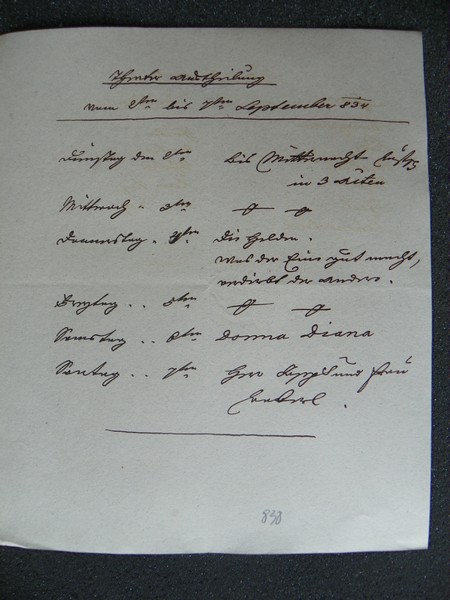 Theater Austheilung
vom 2ten bis 7ten September 834
Dienstag den 2ten bis Mitternacht Lustsp
in 3 Akten
Mittwoch " 3ten
Donnerstag " 4ten Die Helden.
Was der Eine gut macht,
verdirbt der Andere.
Freytag .. 5ten
Samstag .. 6ten Donna Diana
Sontag .. 7ten Herr und Frau
838